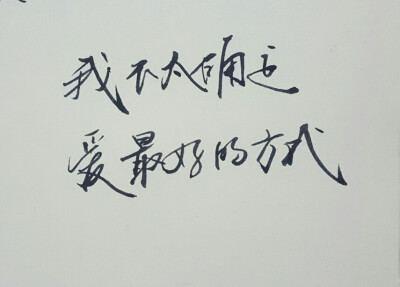 我不太确定
爱最好的方式